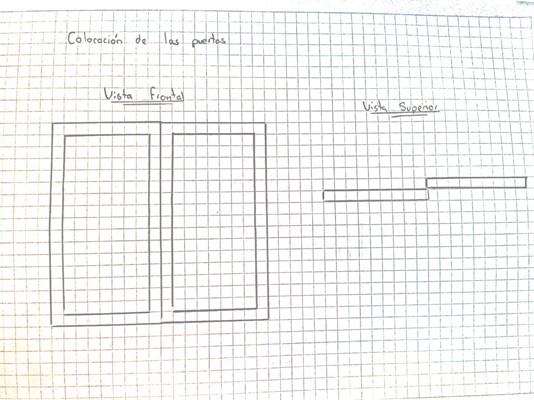 Colocación de las puertas
Vista Frontal
Vista Superior